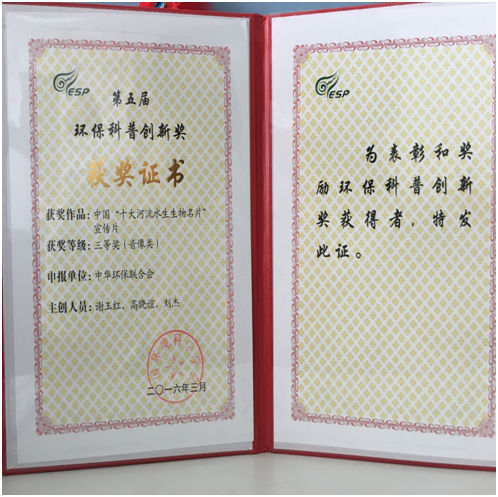 YESP
第五届
环保科普创新奖
获奖证书
获奖作品：中国“十大河流水生生物名片”
宣传片
获奖等级：三等奖（音像类）
申报单位：中华环保联合会
主创人员：谢玉红、高晓谊、刘杰
二〇一六年三月
YESP
为表彰和奖
励环保科普创新
奖获得者，特发
此证。